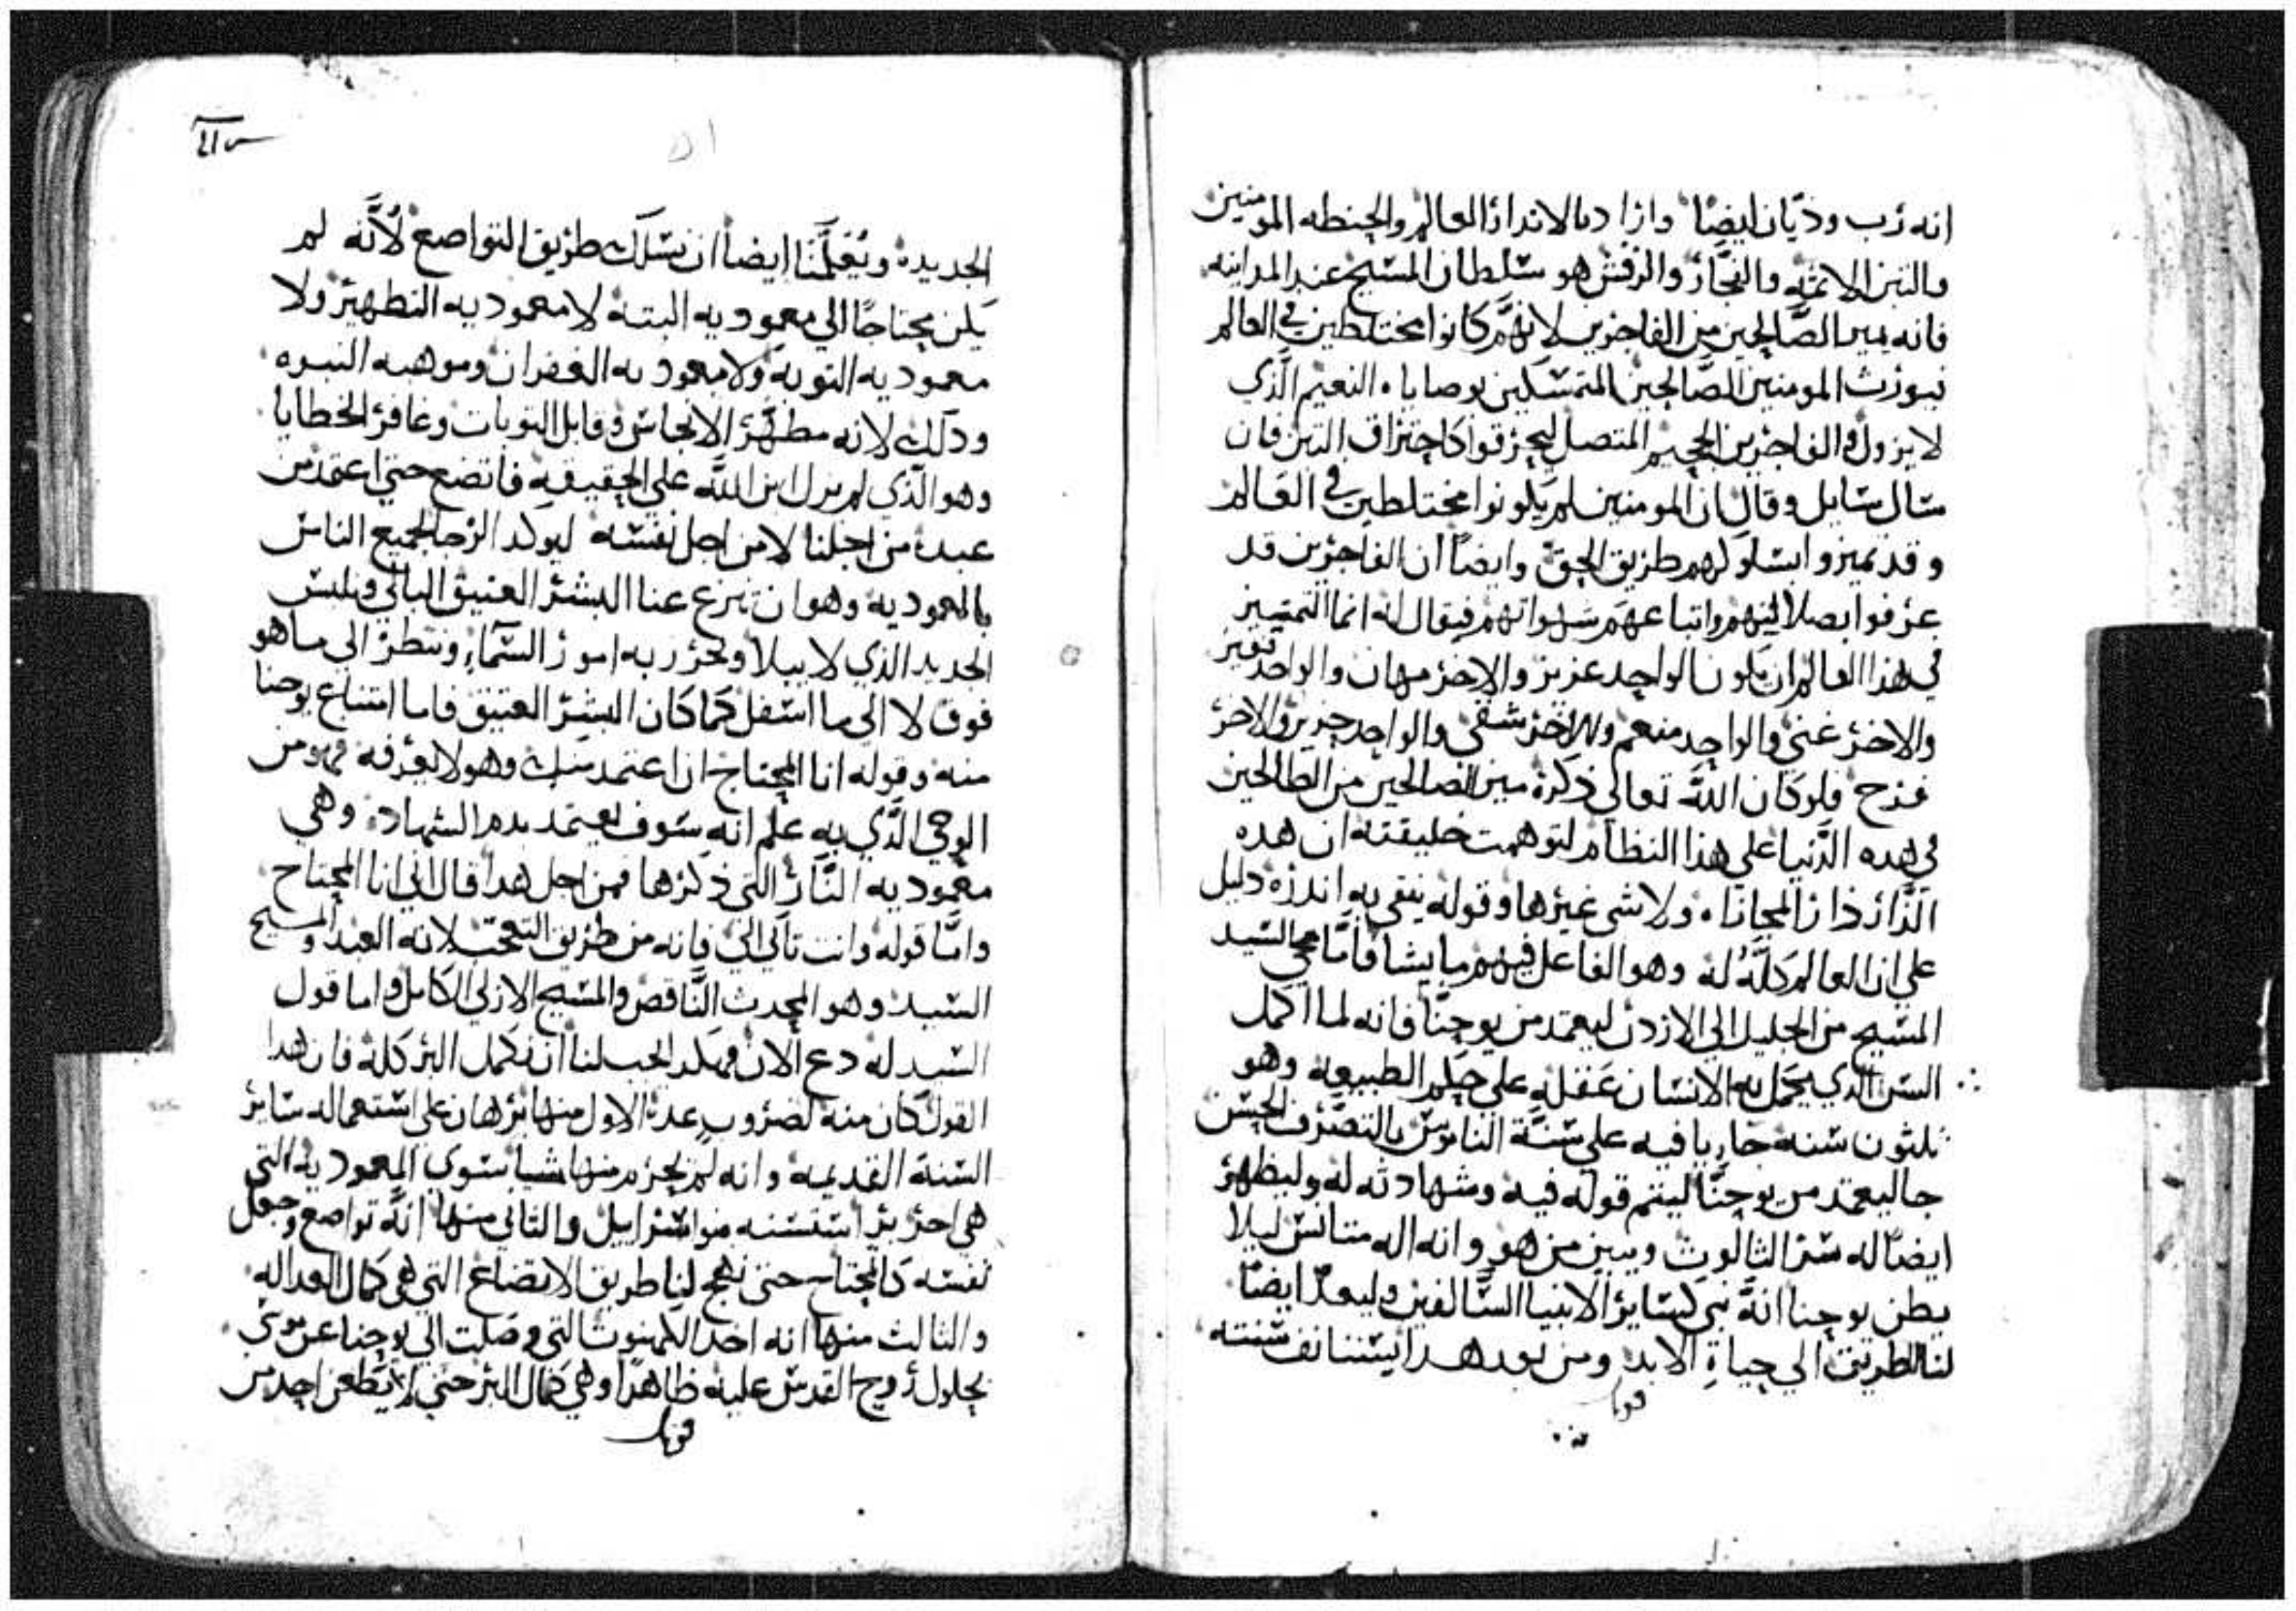 انه رب وديان ايضا واراد بالاندار العالم والحنطه المومنين
والتبن الاثمه والفجار والرفش هو سلطان المسيح عند المداينه
فانه يميز الصالحين من الفاجرين لانهم كانوا مختلطين في العالم
فيورث المومنين الصالحين المتمسكين بوصاياه النعيم الذي
لا يزول والفاجرين الجحيم المتصل ليحرقوا كاحتراق التبن فان
سال سايل وقال ان المومنين لم يكونوا مختلطين في العالم
وقد تميزوا بسلوكهم طريق الحق وايضا ان الفاجرين قد
عرفوا بضلاليتهم واتباعهم شهواتهم فيقال له انما التمييز
في هذا العالم ان يكون الواحد عزيز والاخر مهان والواحد فقير
والاخر غني والواحد منعم والاخر شقي والواحد حزين والاخر
فرح فلو كان الله تعالى ذكره ميز الصالحين من الطالحين
في هده الدنيا على هذا النظام لتوهمت خليقته ان هده
الدار دار المجازاه ولا شي غيرها وقوله ينقي به اندره دليل
على ان العالم كله له وهو الفاعل فيهم ما يشا فاما مجي السيد
المسيح من الجليل الى الاردن ليعتمد من يوحنا فانه لما اكمل
السن الدي يحمل به الانسان عقله على حكم الطبيعه وهو
ثلثون سنه جاريا فيه على سنة الناموس بالتصرف الحسن
جا ليعتمد من يوحنا ليتم قوله فيه وشهادته له وليظهر
ايضا له سر الثالوث ويبين من هو وانه اله متانس ليلا
يظن يوحنا انه نبي كساير الانبيا السالفين وليعد ايضا
لنا الطريق الي حياة الابد ومن بعد هدا يستانف سنته
قوبل
٥١
الجديدة ويعلمنا ايضا ان نسلك طريق التواضع لانه لم
يكن محتاجا الي معموديه البتة لا معموديه التطهير ولا
معموديه التوبة ولا معموديه الغفران وموهبه البنوه
ودلك لانه مطهر الانجاس وقابل التوبات وغافر الخطايا
وهو الذي لم يزل ابن الله على الحقيقيه فاتضع حتي اعتمد من
عبده من اجلنا لا من اجل نفسه ليوكد الرجا لجميع الناس
بالمعوديه وهو ان ننزع عنا البشر العتيق البالي ونلبس
الجديد الذي لا يبلا ونحرز به امور السماء وننظر الى ما هو
فوق لا الى ما اسفل كما كان البشر العتيق فاما امتناع يوحنا
منه وقوله انا المحتاج ان اعتمد منك وهو لا يعرفه فهو من
الوحي الذي به علم انه سوف يعتمد بدم الشهاده وهي
معموديه النار التي ذكرها فمن اجل هدا قال اني انا المحتاج
واما قوله وانت تاتي الي فانه من طريق التعجب لانه العبد والمسيح
السيد وهو المحدث الناقص والمسيح الازلي الكامل واما قول
السيد له دع الان فهكدا يجب لنا ان نكمل البر كله فان هدا
القول كان منه لضروب عدة الاول منها برهان على استعماله ساير
السنة القديمه وانه لم يخرم منها شيا سوى المعموديه التي
هي احرى والتاني منها انه تواضع وجعل
نفسه كالمحتاج حتى نهج لنا طريق الاتضاع التي هي كمال العداله
والثالث منها انه اخد الكهنوت التي وصلت الي يوحنا عن موسى
بحلول روح القدس عليه ظاهرا وهي كمال البر حتي لا يطعن احد من
قوبل